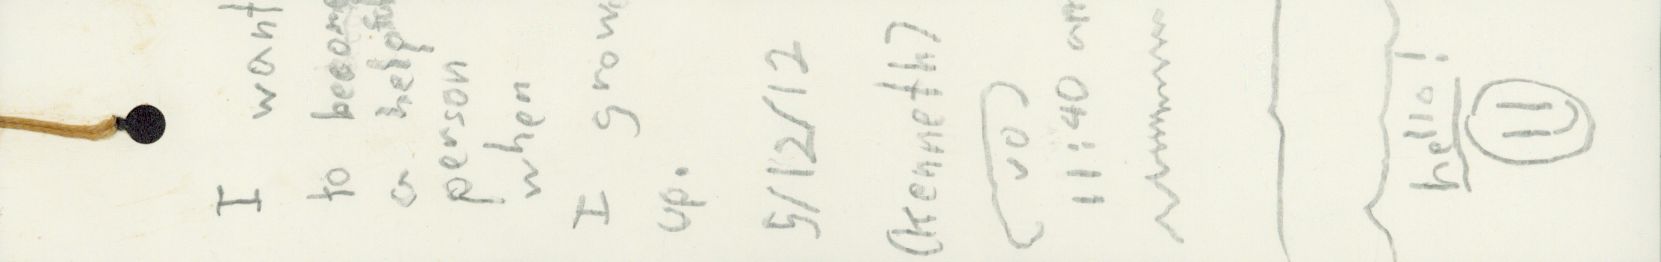 I want
to become
a helpful
person
when
I grow
up.
5/12/12
(Kenneth)
11:40 am
hello!